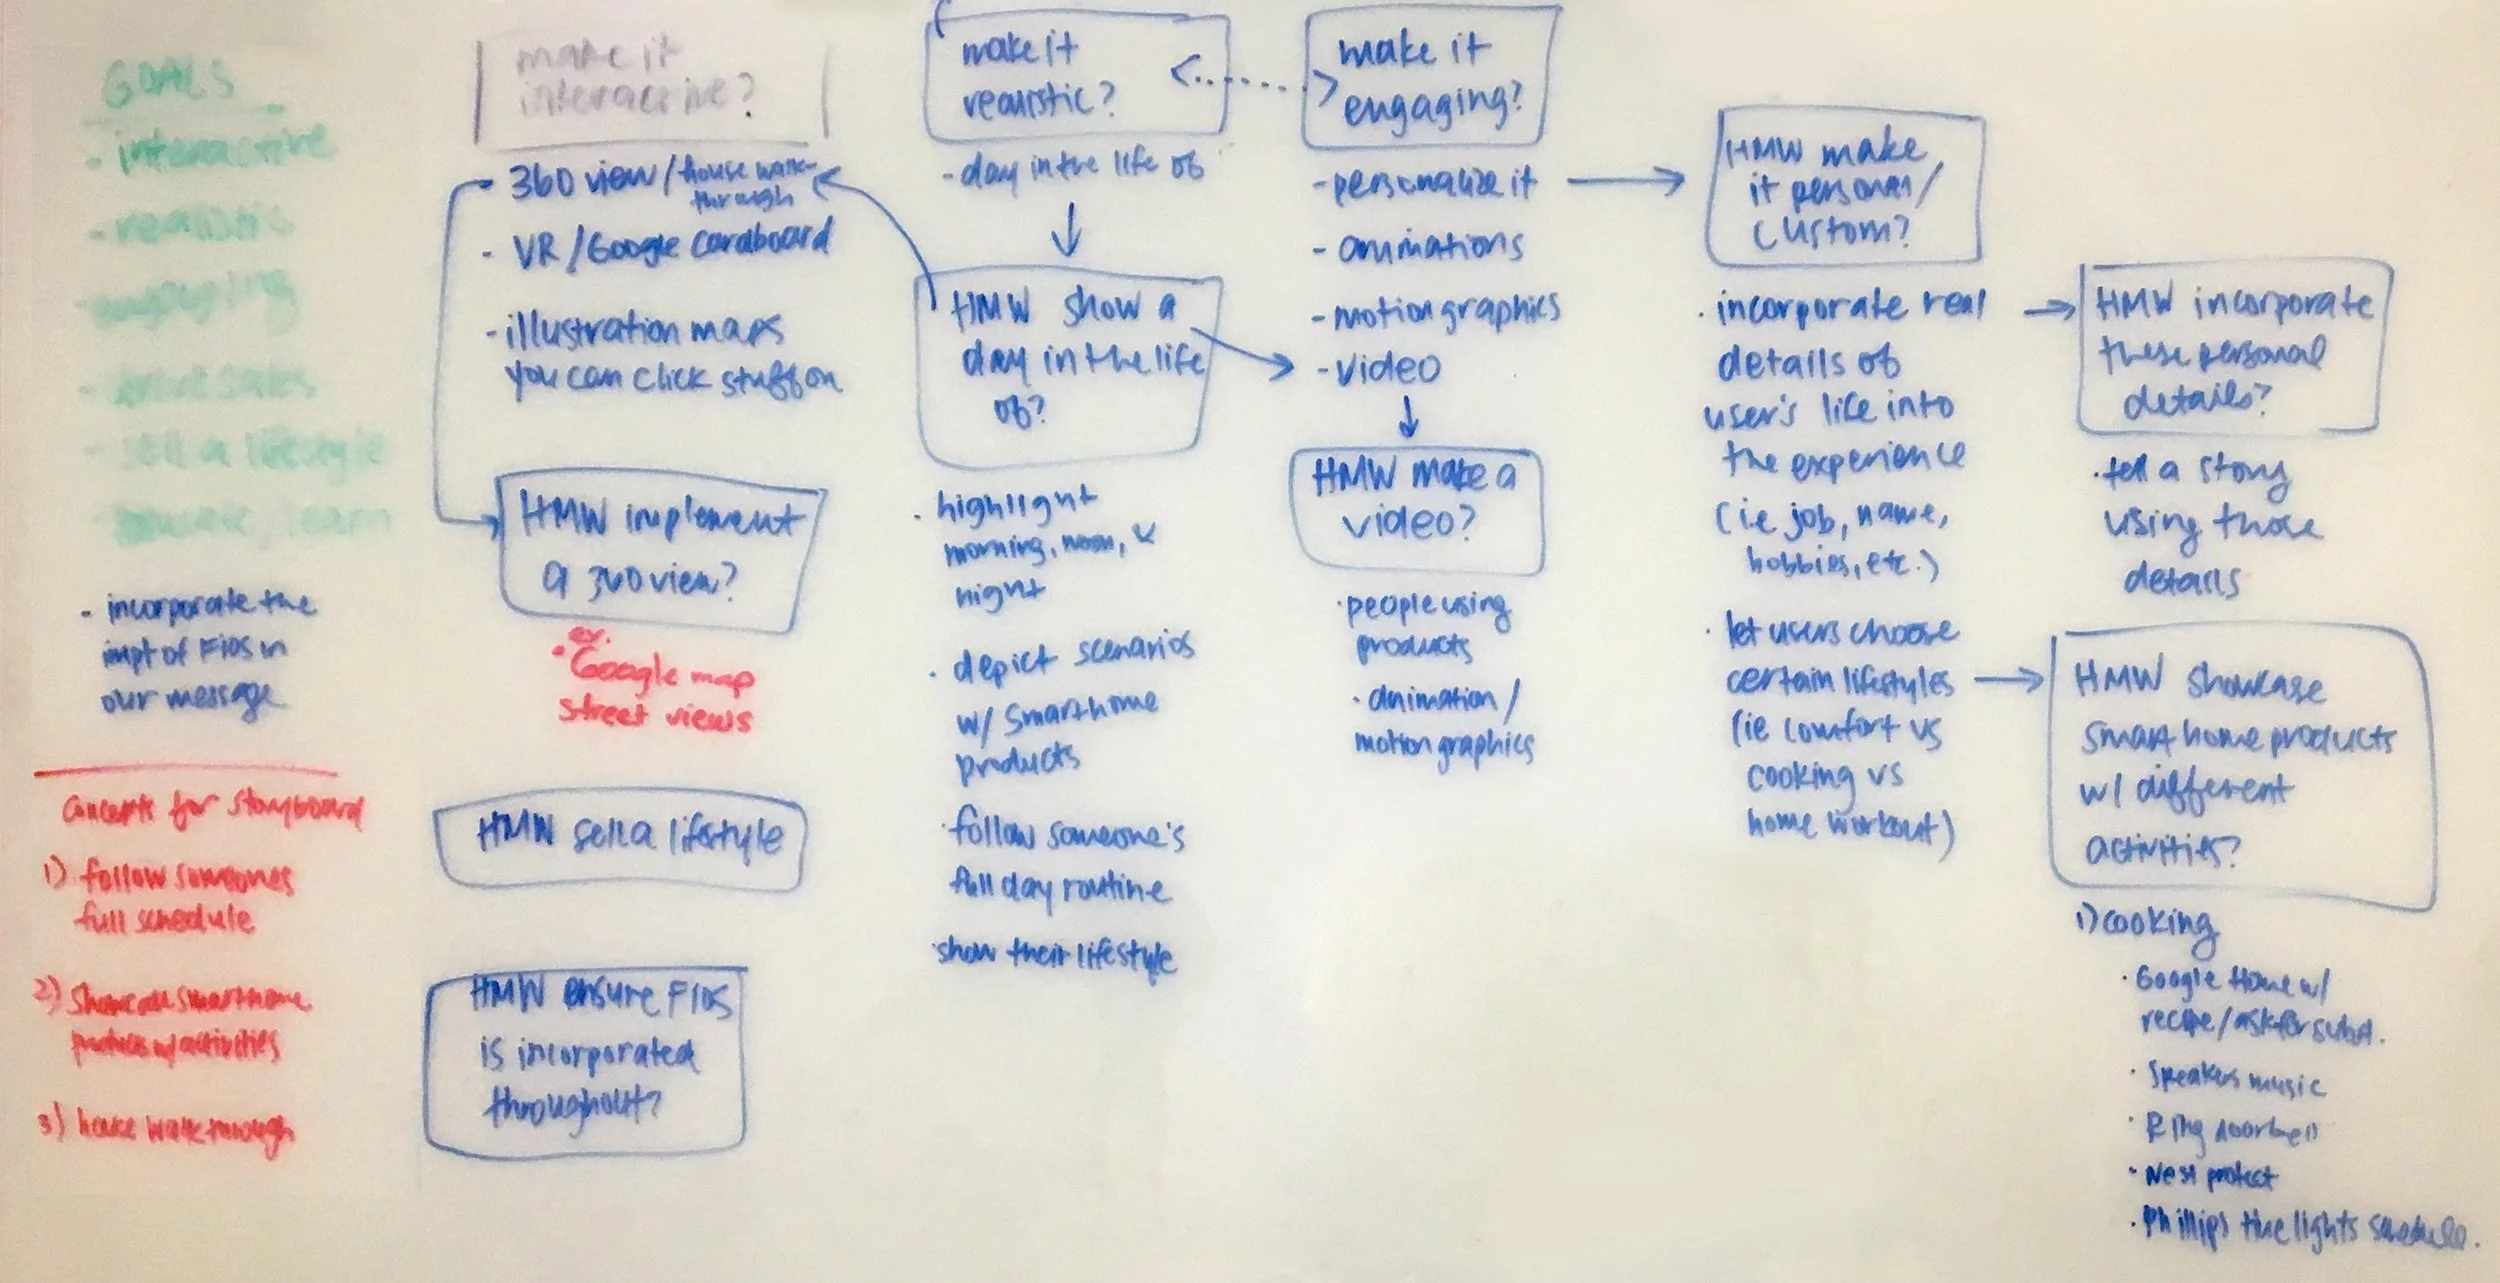 GOALS
- interactive
- realistic
- engaging
- drive sales
- sell a lifestyle
- educate/learn
- incorporate the
impt of FiOS in
our message
Concepts for Storyboard
1) follow someones
full schedule
2) Showcase smarthome
products w/ activities
3) house walkthrough
make it
interactive?
- 360 view/house walk-
through
- VR/Google cardboard
- illustration maps
you can click stuff on
HMW implement
a 360 view?
ex.
• Google map
street views
HMW sell a lifestyle
HMW ensure FiOS
is incorporated
throughout?
make it
realistic?
- day in the life of
HMW show a
day in the life
of?
· highlight
morning, noon, &
night
· depict scenarios
w/ smarthome
products
· follow someone's
full day routine
· show their lifestyle
make it
engaging?
- personalize it
- animations
- motion graphics
- video
HMW make a
video?
· people using
products
· animation/
motion graphics
HMW make
it personal/
custom?
· incorporate real
details of
user's life into
the experience
(ie job, name,
hobbies, etc.)
· let users choose
certain lifestyles
(ie comfort vs
cooking vs
home workout)
HMW incorporate
these personal
details?
· tell a story
using those
details
HMW showcase
smart home products
w/ different
activities?
1) cooking
· Google Home w/
recipe/ask for subst.
· Speakers music
· Ring doorbell
· Nest protect
· Phillips Hue lights schedule.